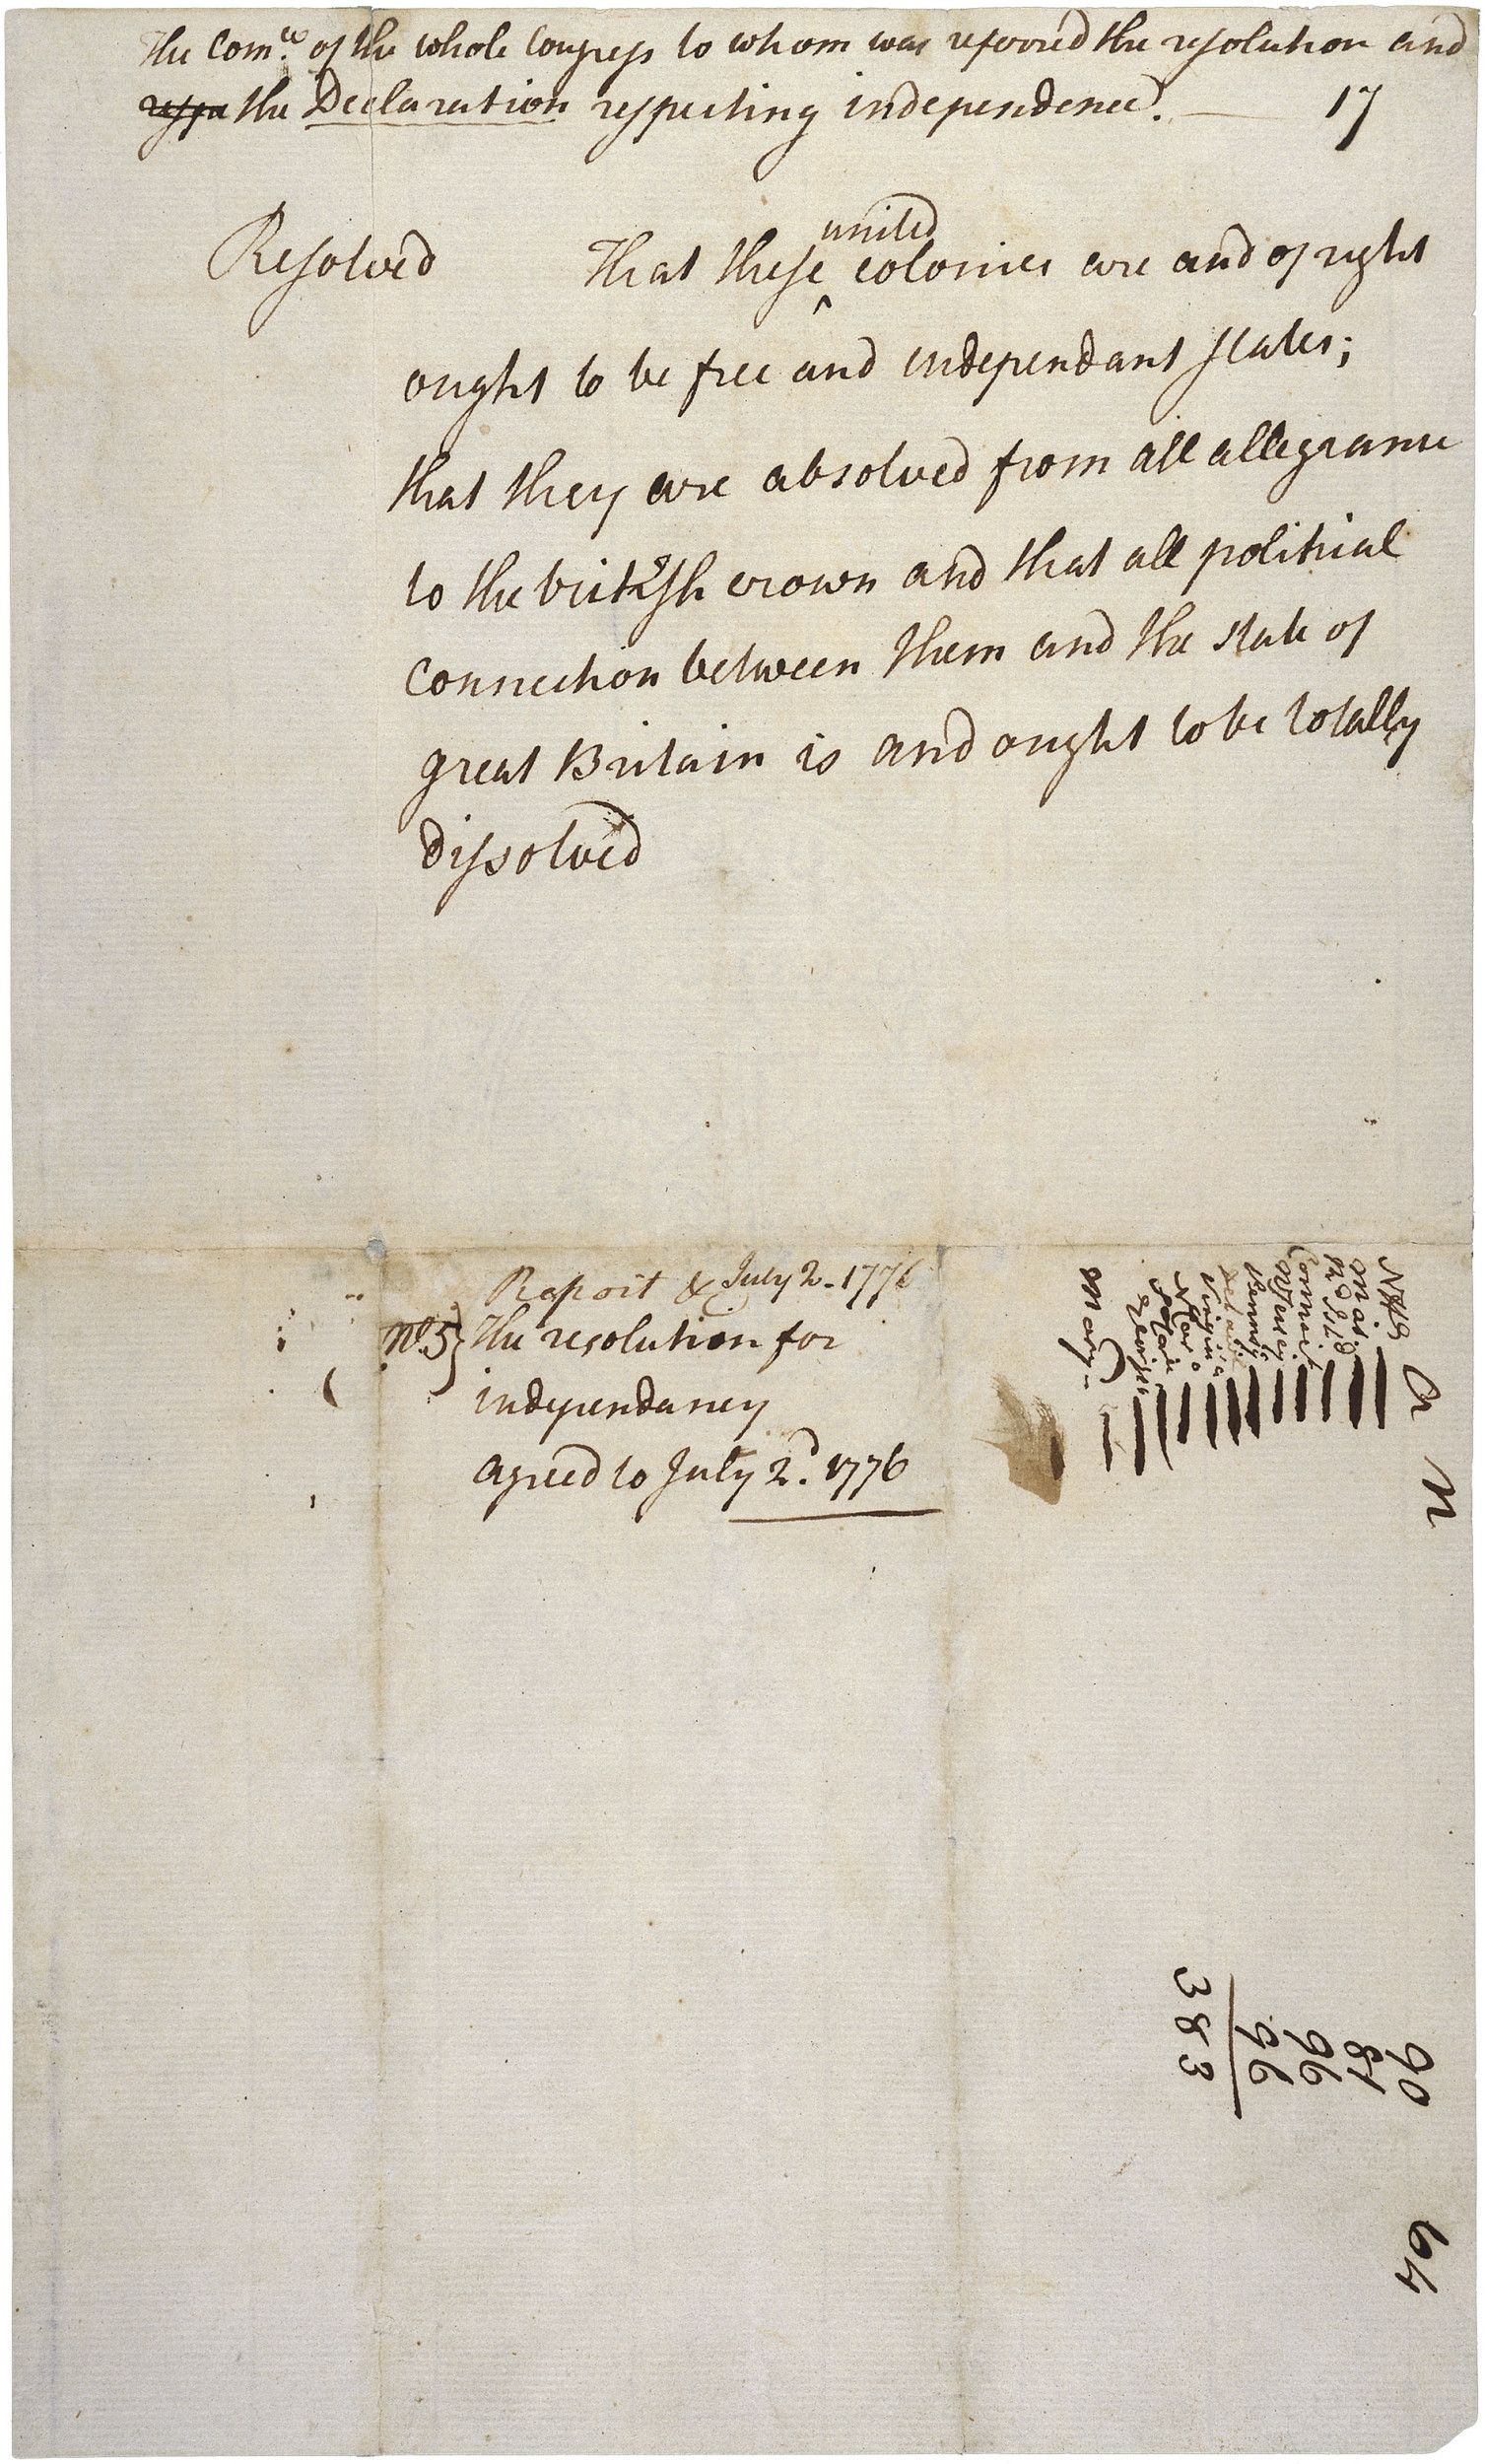 The Com.ee of the whole Congress to whom was referred the resolution and
the Declaration respecting independence. — 17
Resolved That these united colonies are and of right
ought to be free and independant states;
that they are absolved from all allegiance
to the british crown and that all political
connection between them and the state of
great Britain is and ought to be totally
dissolved
Report & July 2. 1776
No. 5} The resolution for
independancy
agreed to July 2d. 1776
N
NHs
mas.
Connect
Virginia
N Car
Georgia
Mary-
90
81
96
96
383
64